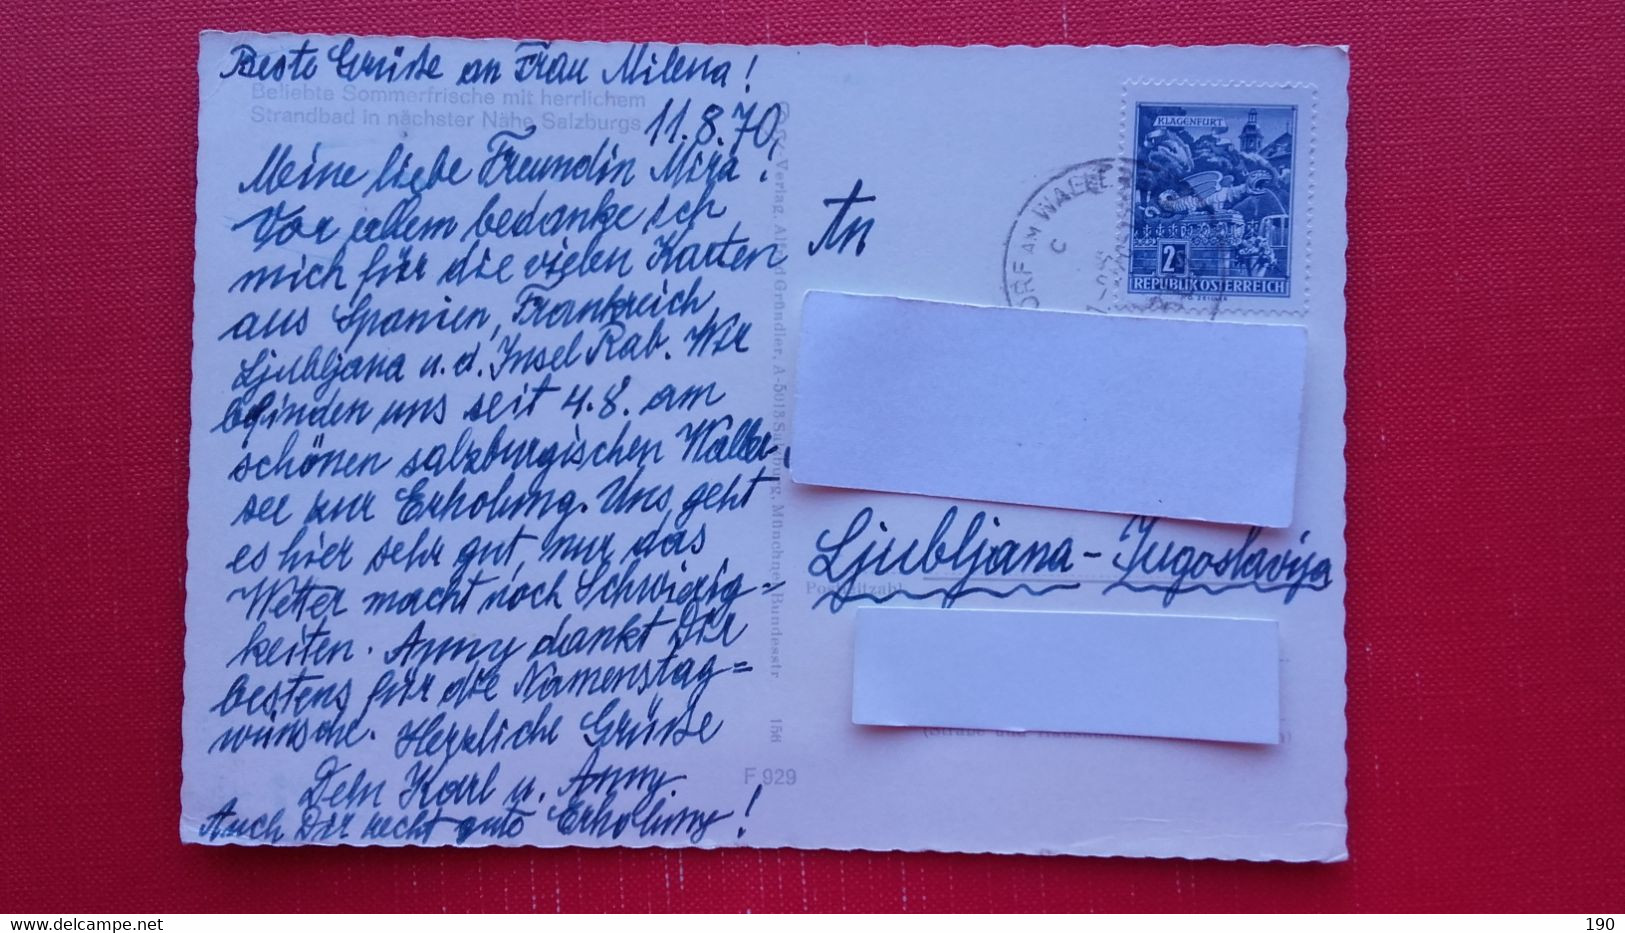 Beste Grüße an Frau Milena!
Beliebte Sommerfrische mit herrlichem
Strandbad in nächster Nähe Salzburgs
11.8.70,
Meine liebe Freundin Mira!
Vor allem bedanke ich
mich für die vielen Karten
aus Spanien, Frankreich
Ljubljana u. d. Insel Rab. Wir
befinden uns seit 4.8. am
schönen salzburgischen Waller-
see zur Erholung. Uns geht
es hier sehr gut, nur das
Wetter macht noch Schwierig=
keiten. Anny dankt Dir
bestens für die Namenstag=
wünsche. Herzliche Grüße
Dein Karl u. Anny.
Auch Dir recht gute Erholung!
Verlag, Alfred Gründler, A-5013 Salzburg, Münchner Bundesstr. 156
F 929
An
Ljubljana - Jugoslavija
Postleitzahl
KLAGENFURT
2S
REPUBLIK ÖSTERREICH
ORF AM WALLE
C
delcampe.net
190